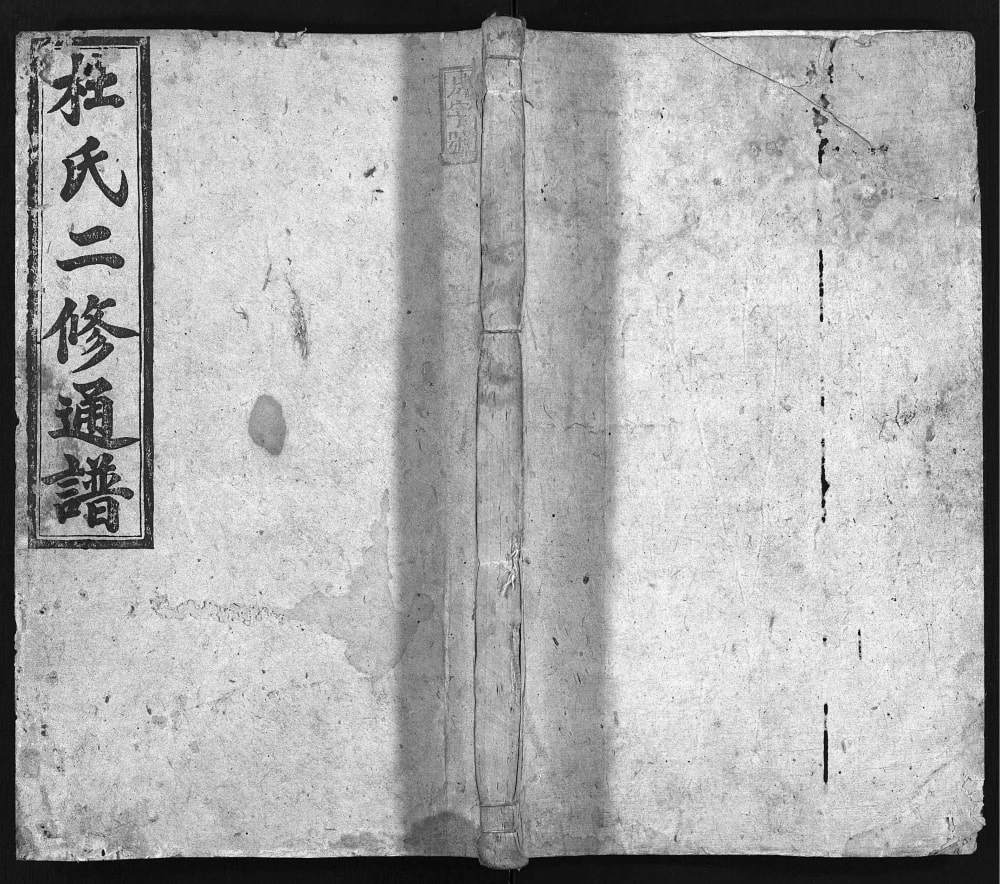 杜氏二修通譜
字號